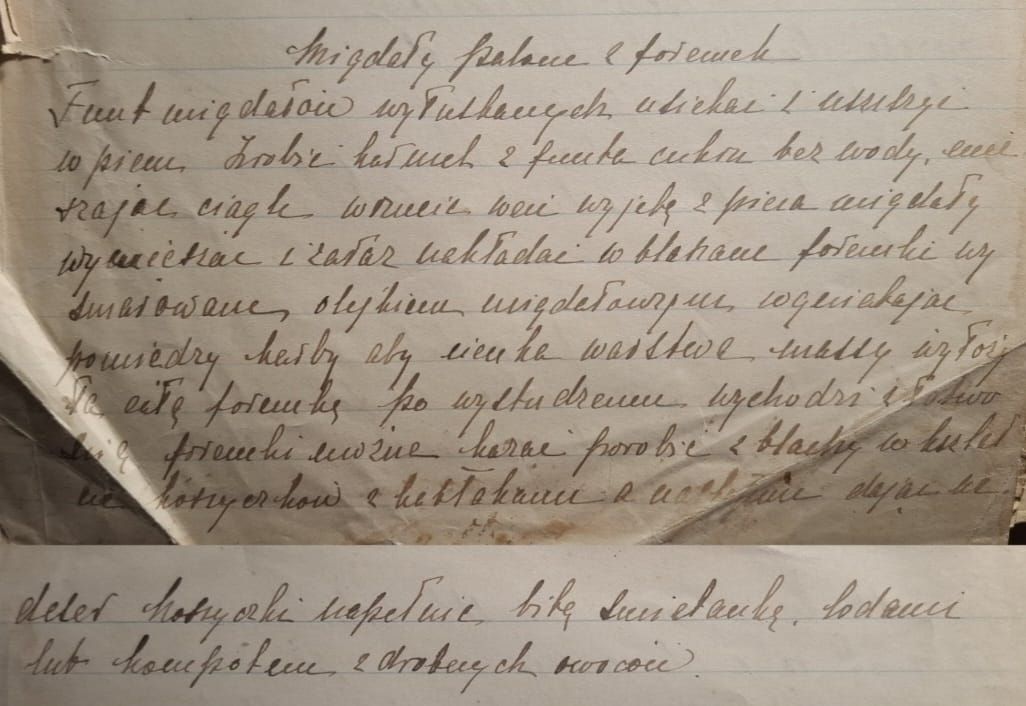 Migdały palone z foremek
Funt migdałów wyłuskanych usiekać i ususzyć
w piecu Zrobić karmel z funta cukru bez wody, mie
szając ciągle wrzucić weń wyjętę z pieca migdały
wymieszać i zaraz nakładać w blaszane foremki wy
smarowane olejkiem migdałowym wgniatając
pomiędzy karby aby cienka warstwa massy wyłoży
ła całą foremkę po wystudzeniu wychodzi z łatwo
ścią foremki można kazać porobić z blachy w kształ
cie koszyczków z kabłąkami a następnie dając na
deser koszyczki napełnić bitą śmietanką, lodami
lub kompotem z drobnych owoców